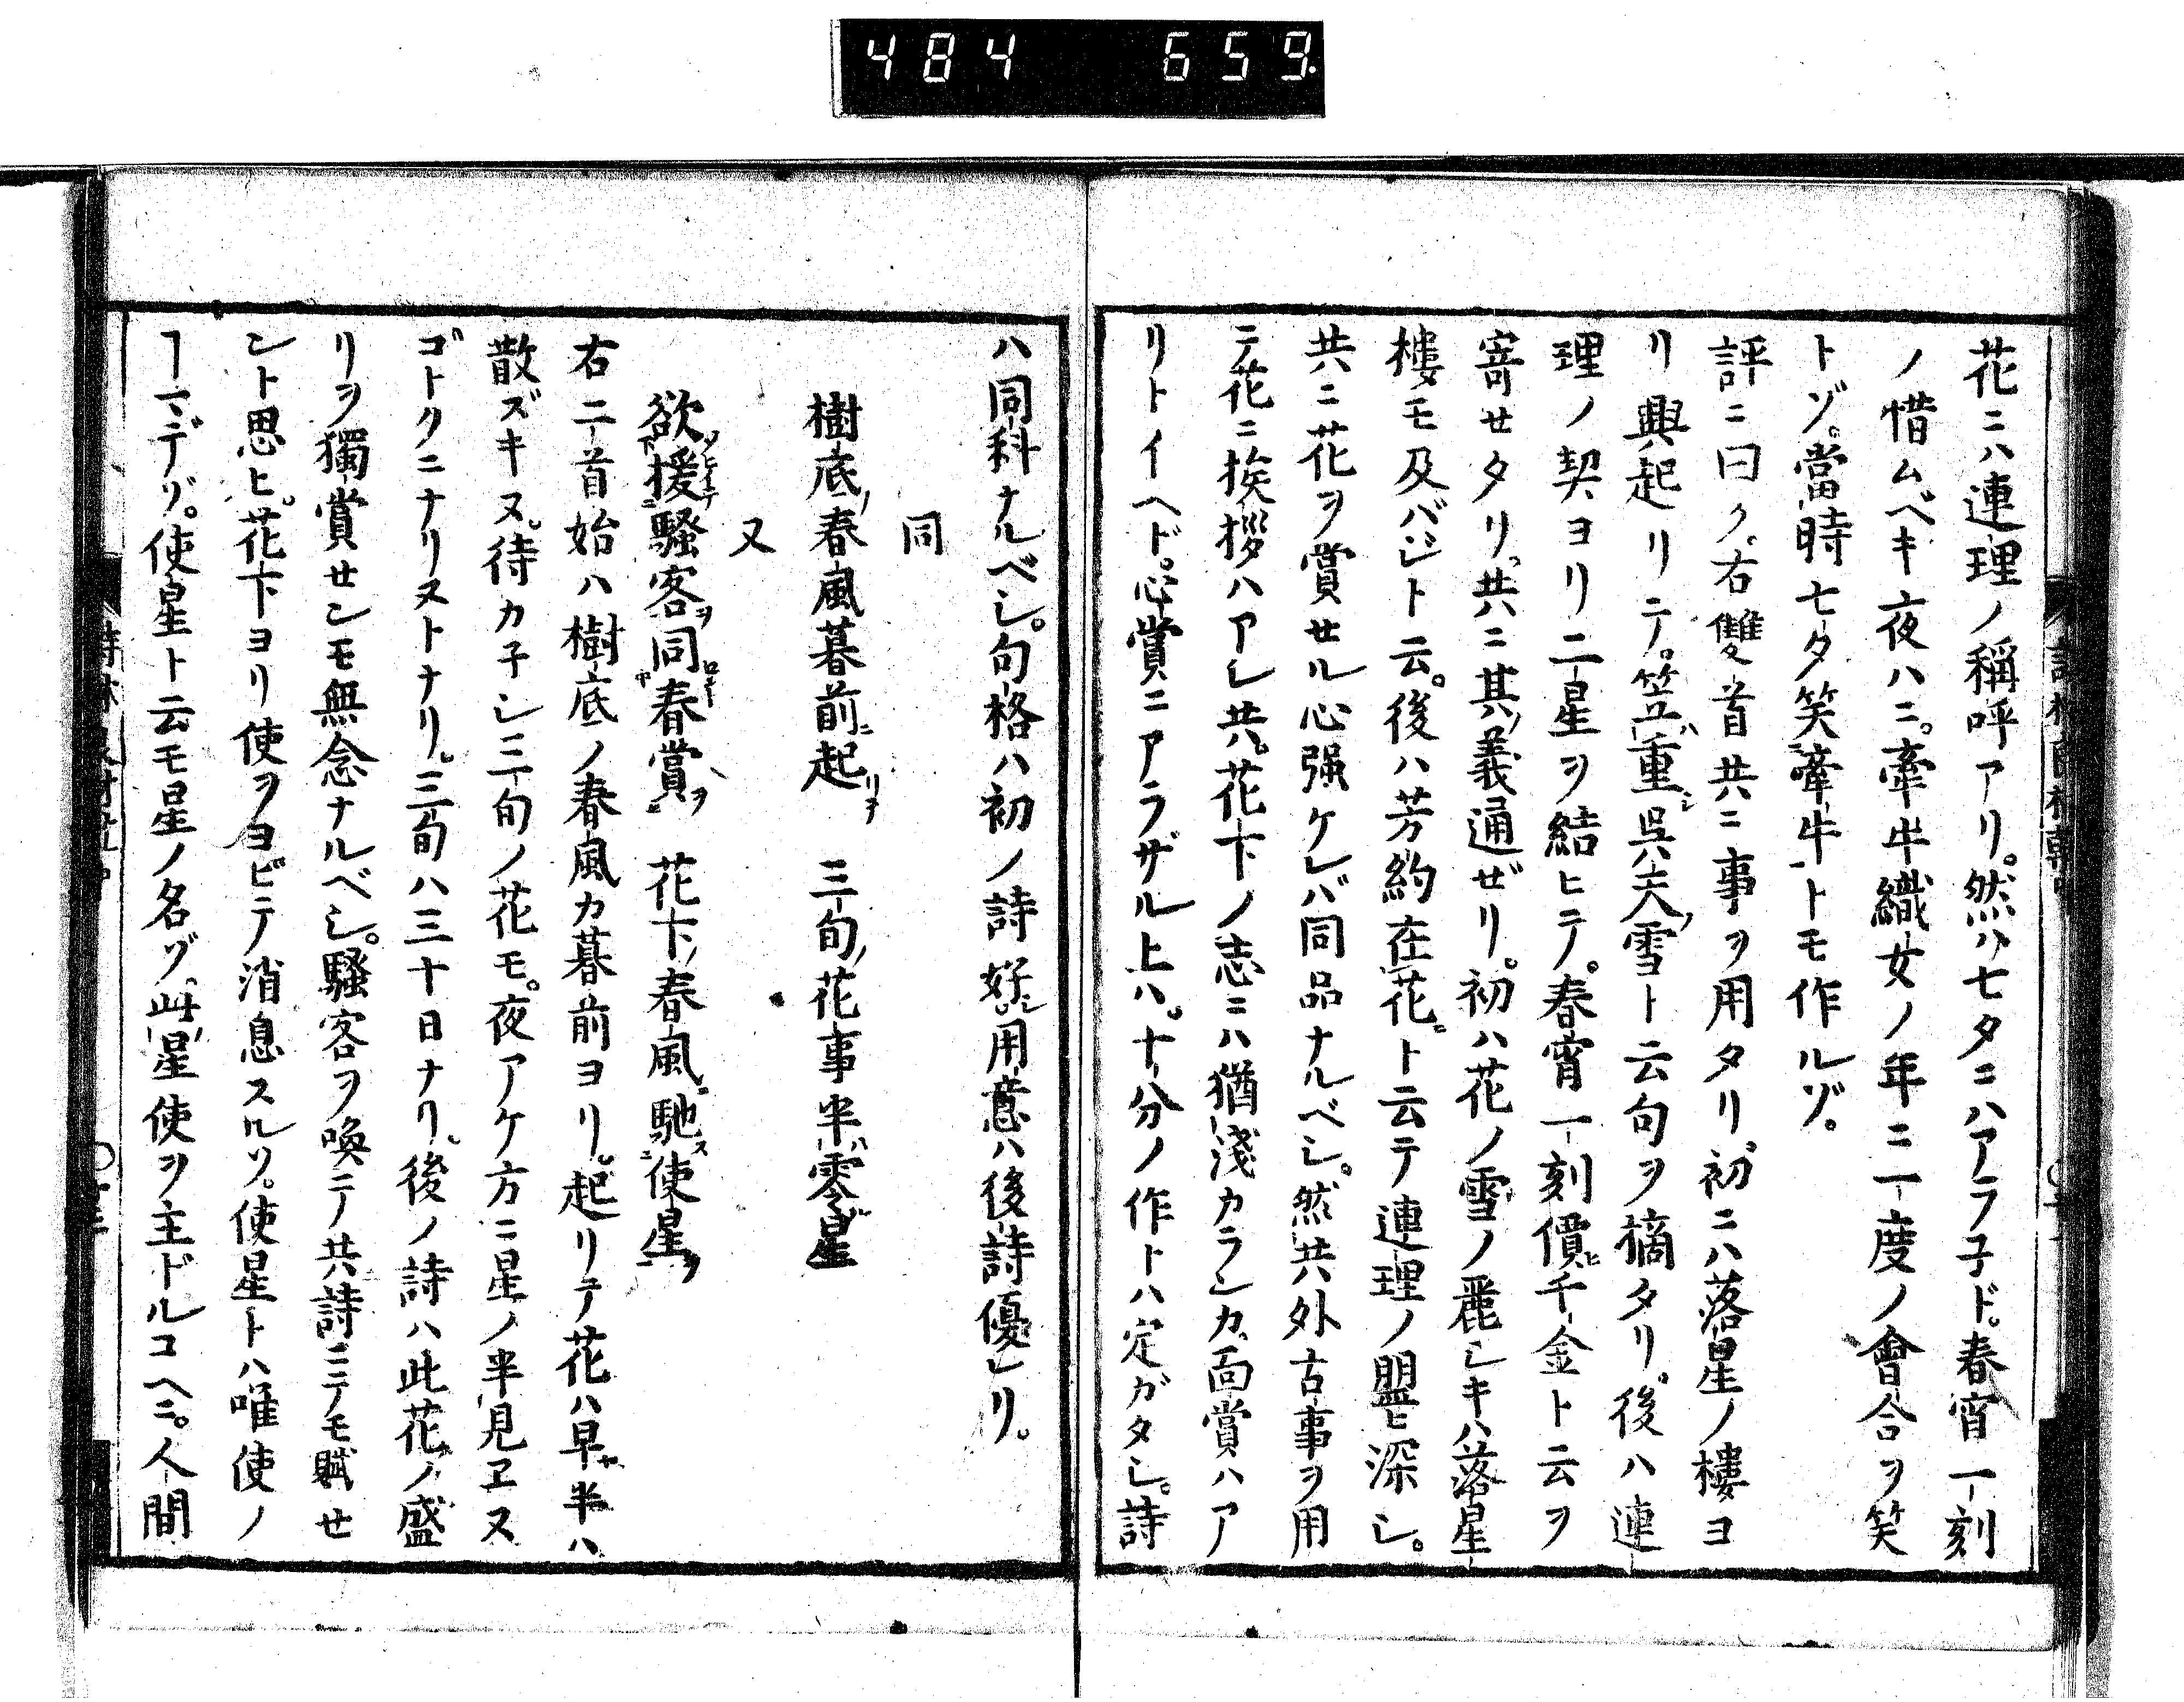 484 659
花ニハ連理ノ稱呼アリ。然ハ七夕ニハアラ子ド。春宵一刻
ノ惜ムベキ夜ハニ。牽牛織女ノ年ニ一度ノ會合ヲ笑
トゾ。當時七夕笑牽牛トモ作ルゾ。
評ニ曰ク。右雙首共ニ事ヲ用タリ。初ニハ落星ノ樓ヨ
リ興起リテ。笠重呉天雪ト云句ヲ摘タリ。後ハ連
理ノ契ヨリ二星ヲ結ヒテ。春宵一刻價千金ト云ヲ
寄セタリ。共ニ其義通ゼリ。初ハ花ノ雪ノ麗シキハ落星
樓モ及バジト云。後ハ芳約在花ト云テ連理ノ盟ヒ深シ。
共ニ花ヲ賞セル心強ケレバ同品ナルベシ。然共外古事ヲ用
テ花ニ挨拶ハアレ共。花下ノ志ニハ猶淺カランカ。面賞ハア
リトイヘド。心賞ニアラザル上ハ。十分ノ作トハ定ガタシ。詩
ハ同科ナルベシ。句格ハ初ノ詩好。用意ハ後詩優レリ。
同
樹底ノ春風暮前ニ起リテ 三旬ノ花事半ハ零星
又
欲援騷客ヲ同春賞ヲ 花下ノ春風馳ス使星ヲ
右二首始ハ樹底ノ春風カ暮前ヨリ。起リテ花ハ早半ハ
散ズキヌ。待カ子シ三旬ノ花モ。夜アケ方ニ星ノ半見ヱヌ
ゴトクニナリヌトナリ。三旬ハ三十日ナリ。後ノ詩ハ此花ノ盛
リヲ獨賞センモ無念ナルベシ。騷客ヲ喚テ共詩ニテモ賦セ
ント思ヒ。花下ヨリ使ヲヨビテ消息スルソ。使星トハ唯使ノ
ヿマデゾ。使星ト云モ星ノ名ゾ。此星使ヲ主ドルユヘニ。人間